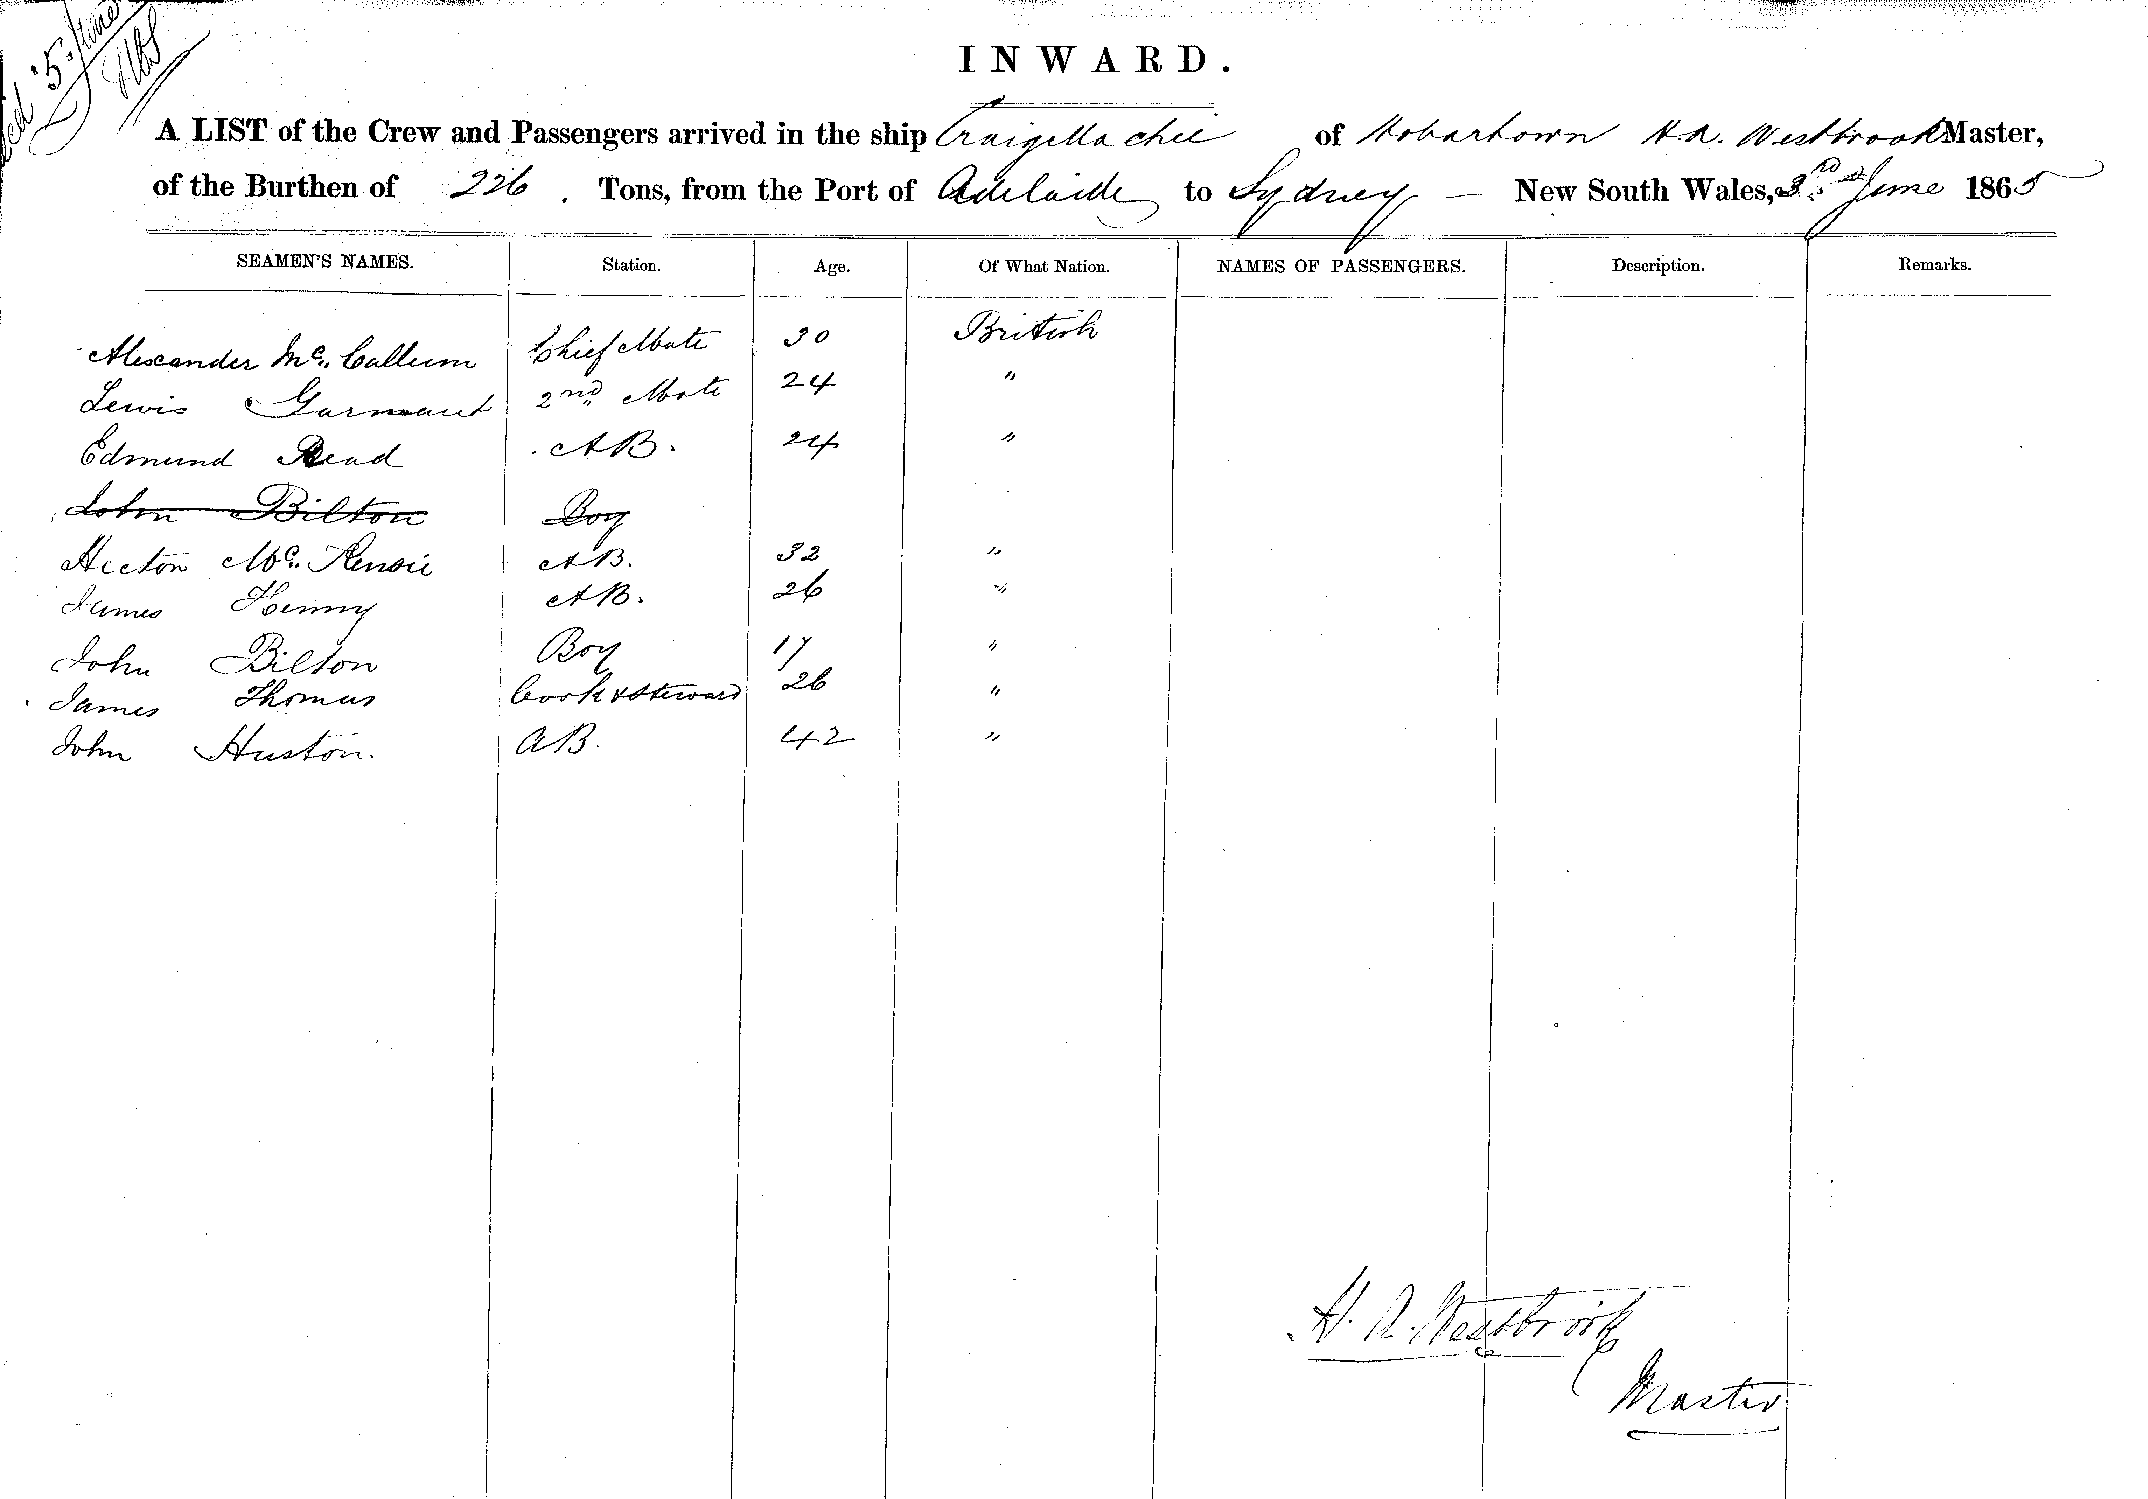 5. June
INWARD.
A LIST of the Crew and Passengers arrived in the ship Craigellachie of Hobartown H. R. Westbrook Master,
of the Burthen of 226 . Tons, from the Port of Adelaide to Sydney – New South Wales, 3rd June 1865
SEAMEN'S NAMES. Station. Age. Of What Nation. NAMES OF PASSENGERS. Description. Remarks.
Alexander Mc. Callum Chief Mate 30 British
Lewis 2nd Mate 24 "
Edmund Read AB. 24 "
John Bilton Boy
Hector Mc. Kensie AB. 32 "
James Kenny AB. 26 "
John Bilton Boy 17 "
James Thomas Cook & Steward 26 "
John Huston. AB. 42 "
H. R. Westbrook
Master